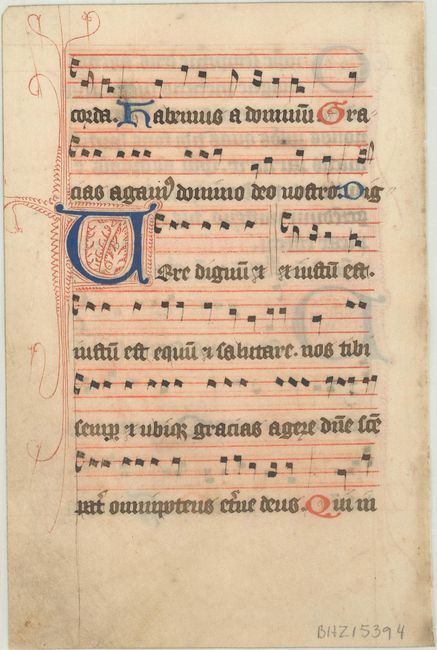 corda. Habemus a dominū Gra
cias agamꝰ domino deo nostro. Dig
Uere dignū et et iustū est.
iustū est equū et salutare. nos tibi
semꝑ et ubiqꝫ gracias agere dn̄e sc̄e
pat̄ omnipotens et̄ne deus. Qui in
BHZ15394